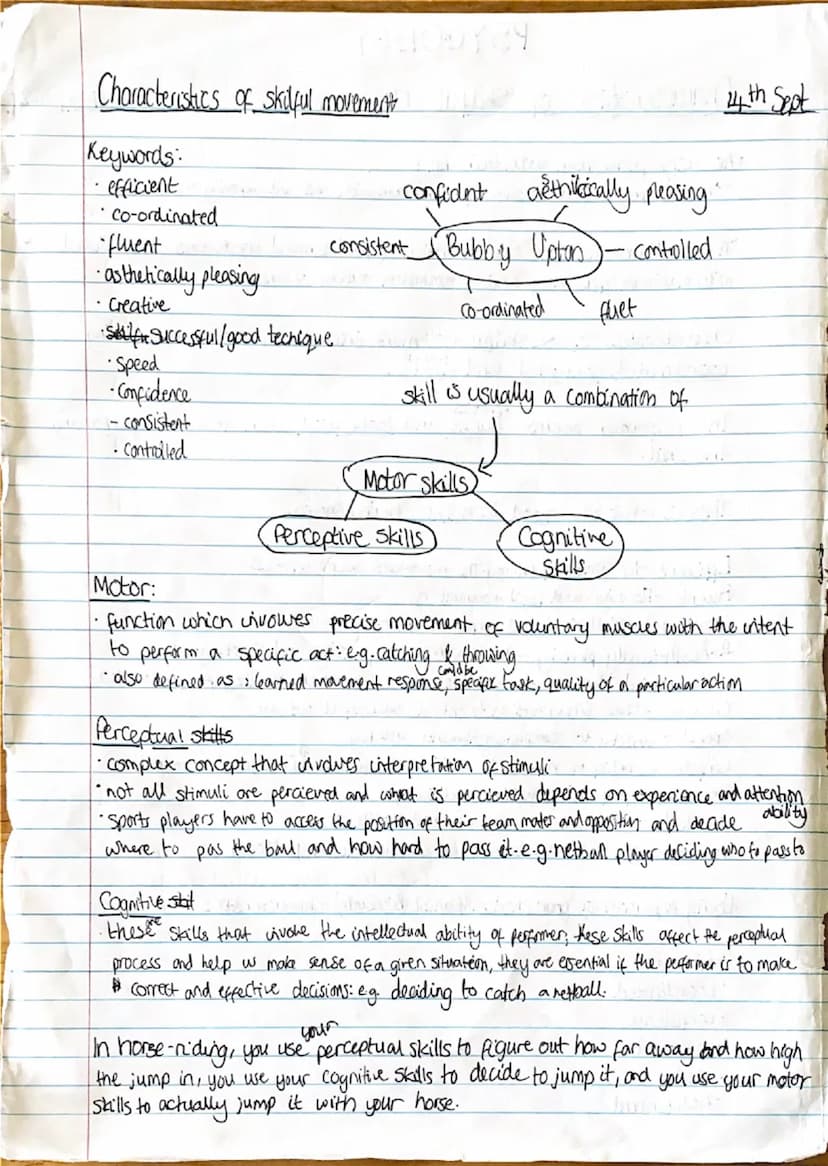 Characteristics of skilful movement 4th Sept
Keywords:
· efficient
· co-ordinated
· fluent
· asthetically pleasing
· creative
· successful/good techique
· speed
· Confidence
- consistent
· controlled
confident aesthikically pleasing
consistent Bubby Upton controlled
co-ordinated fluet
skill is usually a combination of
Motor skills
Perceptive skills Cognitive
skills
Motor:
· function which involves precise movement of voluntary muscles with the intent
to perform a specific act: e.g. catching & throwing
· also defined as: learned movement response, could be specific task, quality of a particular action
Perceptual skills
· complex concept that involves interpretation of stimuli
· not all stimuli are percieved and what is percieved depends on experience and attention
ability
· sports players have to access the position of their team mates and opposition and decide
where to pas the ball and how hard to pass it. e.g. netball player deciding who to pass to
Cognitive skill
· these are skills that involve the intellectual ability of performer, these skills affect the perceptual
process and help us make sense of a given situation, they are essential if the performer is to make
correct and effective decisions: eg deciding to catch a netball.
In horse-riding, you use your perceptual skills to figure out how far away and how high
the jump in, you use your cognitive skills to decide to jump it, and you use your motor
skills to actually jump it with your horse.